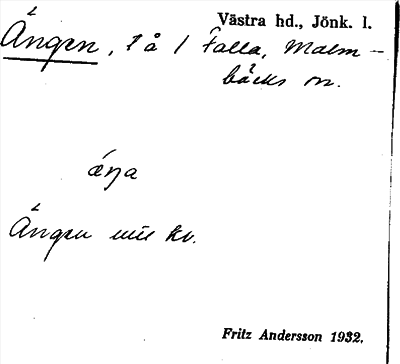 Västra hd., Jönk. l.
Ängen, l å 1 Falla, Malm-
bäcks sn.
äŋa
Ängen mil kv.
Fritz Andersson 1932.